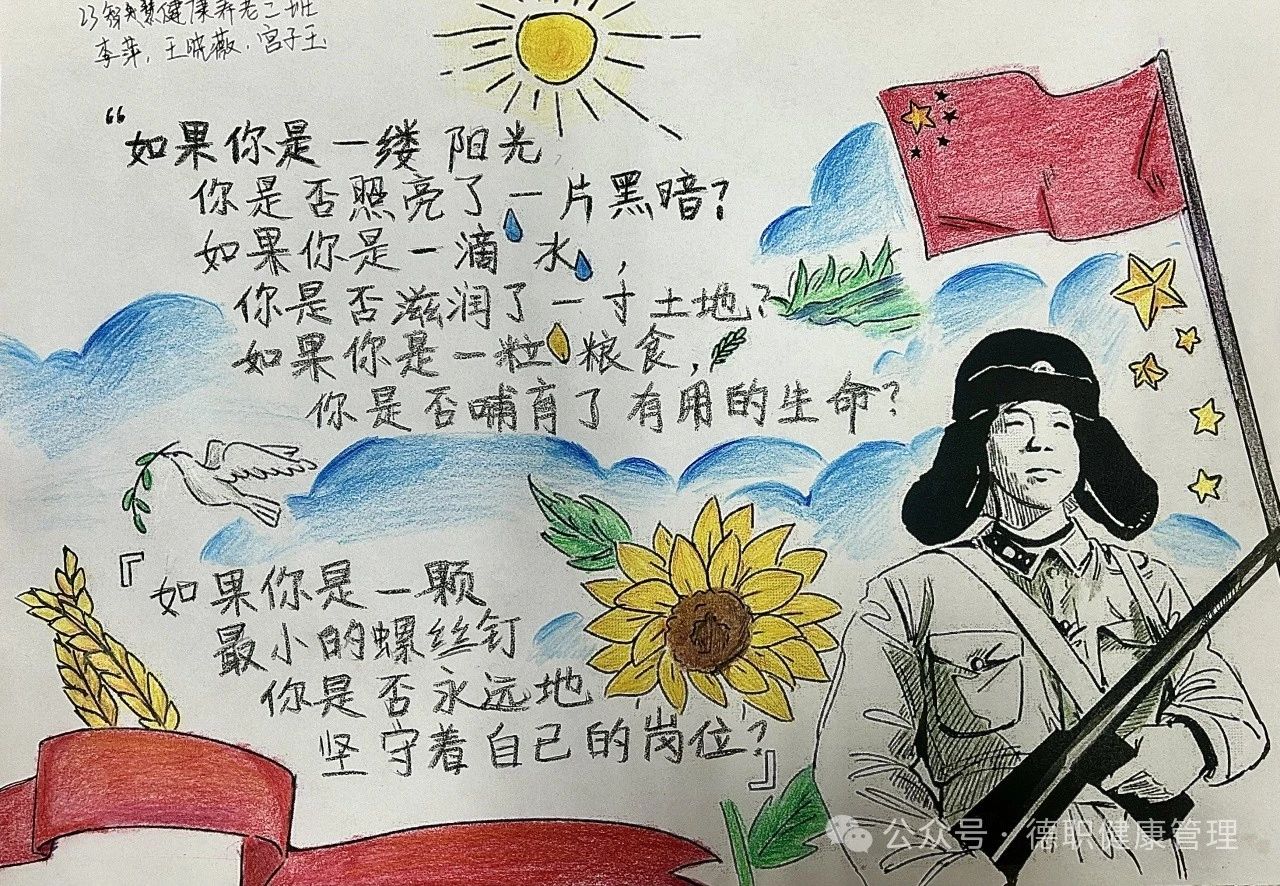 23智慧健康养老二班
李萍，王晓薇，宫子玉
“如果你是一缕阳光
你是否照亮了一片黑暗？
如果你是一滴水，
你是否滋润了一寸土地？
如果你是一粒粮食，
你是否哺育了有用的生命？
『如果你是一颗
最小的螺丝钉
你是否永远地
坚守着自己的岗位？』
公众号·德职健康管理